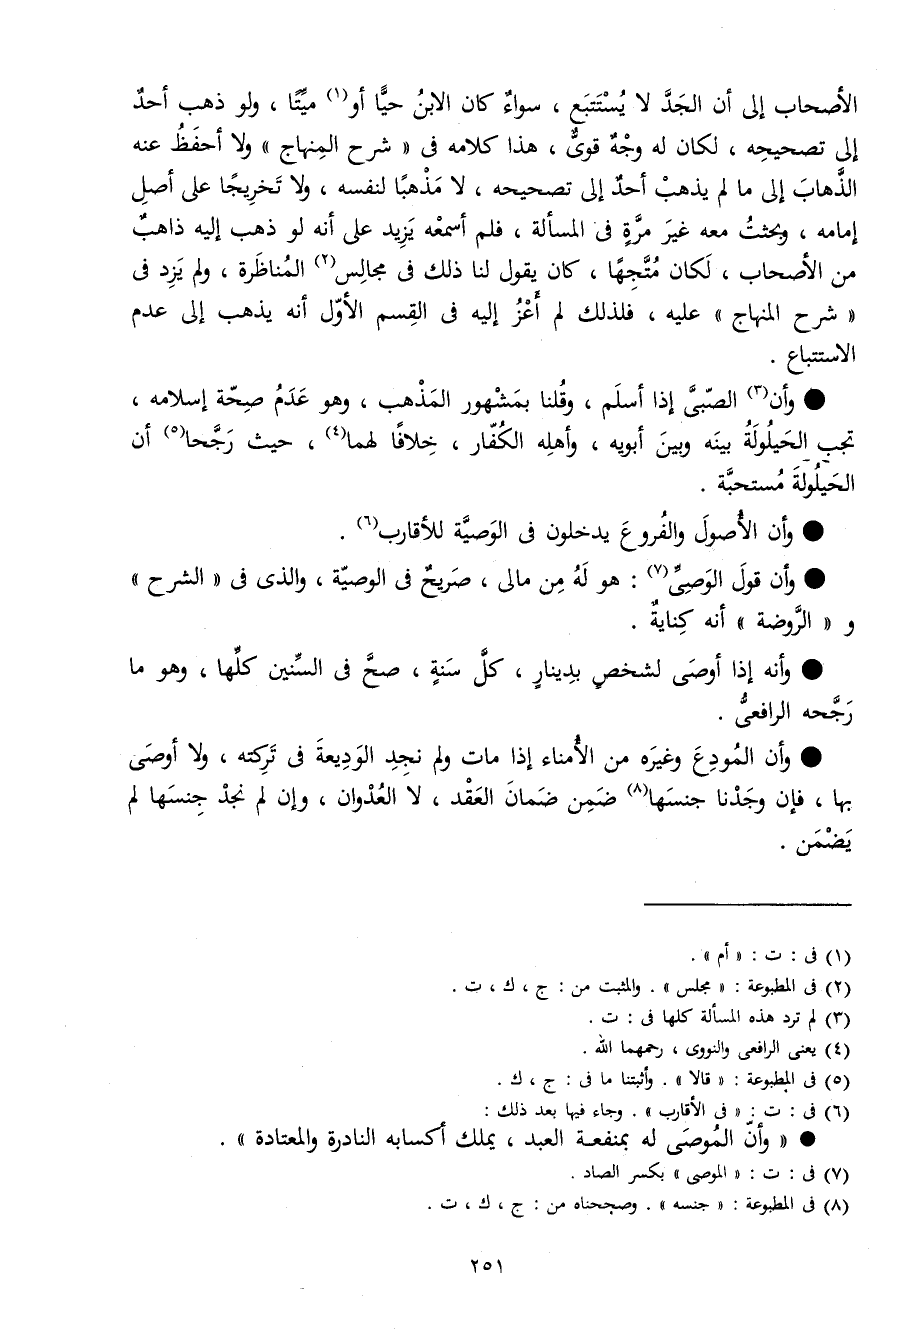 الأصحاب إلى أن الجَدَّ لا يُسْتَتبَع ، سواءٌ كان الابنُ حيًّا أو(١) ميِّتًا ، ولو ذهب أحدٌ
إلى تصحيحِه ، لكان له وجْهٌ قوىٌّ ، هذا كلامه فى « شرح المِنهاج » ولا أحفَظُ عنه
الذَّهابَ إلى ما لم يذهبْ أحدٌ إلى تصحيحه ، لا مَذْهبًا لنفسه ، ولا تَخريجًا على أصلِ
إمامه ، وبحثتُ معه غيرَ مرَّةٍ فى المسألة ، فلم أسمعْه يَزِيد على أنه لو ذهب إليه ذاهبٌ
من الأصحاب ، لَكان مُتَّجِهًا ، كان يقول لنا ذلك فى مجالِس(٢) المُناظَرة ، ولم يَزِد فى
« شرح المنهاج » عليه ، فلذلك لم أَعْزُ إليه فى القِسم الأوّل أنه يذهب إلى عدم
الاستتباع .
● وأن(٣) الصّبىَّ إذا أسلَم ، وقُلنا بمَشْهور المَذْهب ، وهو عَدَمُ صِحّة إسلامه ،
تجب الحَيلُولَةُ بينَه وبينَ أبويه ، وأهلِه الكُفّار ، خِلافًا لهما(٤) ، حيث رَجَّحا(٥) أن
الحَيلُولةَ مُستحبَّة .
● وأن الأُصولَ والفُروعَ يدخلون فى الوَصيَّة للأقارب(٦) .
● وأن قولَ الوَصِىِّ(٧) : هو لَهُ مِن مالى ، صَريحٌ فى الوصيّة ، والذى فى « الشرح »
و « الرَّوضة » أنه كِنايةٌ .
● وأنه إذا أوصَى لشخصٍ بدِينارٍ ، كلَّ سَنةٍ ، صحَّ فى السِّنين كلِّها ، وهو ما
رَجَّحه الرافعىُّ .
● وأن المُودِعَ وغيرَه من الأُمناء إذا مات ولم نجِدِ الوَدِيعةَ فى تَرِكته ، ولا أوصَى
بها ، فإن وجَدْنا جنسَها(٨) ضَمِن ضَمانَ العَقْد ، لا العُدْوان ، وإن لم نجدْ جِنسَها لم
يَضْمَن .
(١) فى : ت : « أم » .
(٢) فى المطبوعة : « مجلس » . والمثبت من : ج ، ك ، ت .
(٣) لم ترد هذه المسألة كلها فى : ت .
(٤) يعنى الرافعى والنووى ، رحمهما الله .
(٥) فى المطبوعة : « قالا » . وأثبتنا ما فى : ج ، ك .
(٦) فى : ت : « فى الأقارب » . وجاء فيها بعد ذلك :
● « وأنّ المُوصَى له بمنفعـة العبد ، يملك أكسابه النادرة والمعتادة » .
(٧) فى : ت : « الموصى » بكسر الصاد .
(٨) فى المطبوعة : « جنسه » . وصححناه من : ج ، ك ، ت .
٢٥١